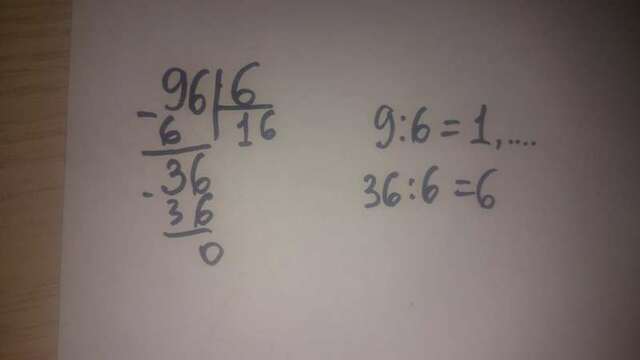 96 6
- 6 16
36
- 36
0
9:6=1,....
36:6=6